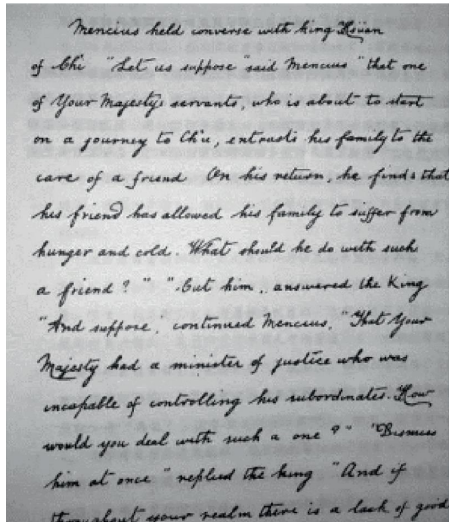 Mencius held converse with king Hsüan
of Ch'i "Let us suppose" said Mencius "that one
of Your Majesty's servants, who is about to start
on a journey to Ch'u, entrusts his family to the
care of a friend On his return, he finds that
his friend has allowed his family to suffer from
hunger and cold. What should he do with such
a friend?" "Cut him, answered the King
"And suppose, continued Mencius, "That Your
Majesty had a minister of justice who was
incapable of controlling his subordinates. How
would you deal with such a one?" "Dismiss
him at once" replied the king "And if
throughout your realm there is a lack of good